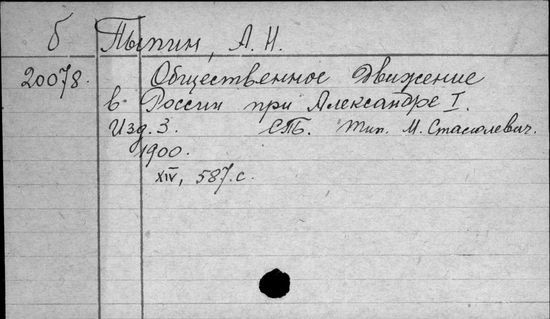 б Пыпин, А. Н.
20078. Общественное движение
в России при Александре I.
Изд. 3. СПБ. Тип. М. Стасюлевич.
1900.
XIV, 587.с.